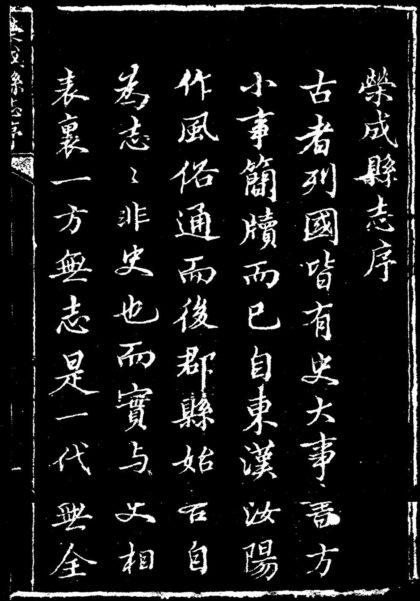 榮成縣志序
古者列國皆有史大事書方
小事簡牘而已自東漢汝陽
作風俗通而後郡縣始各自
為志〻非史也而實与史相
表裏一方無志是一代無全
榮成縣志序
一